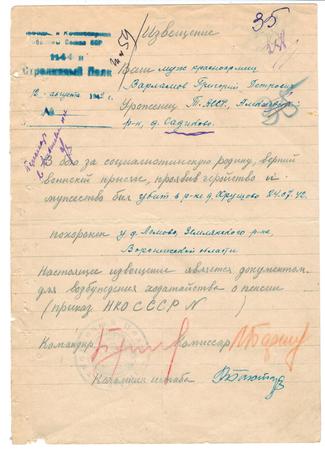 35
№ 59
Извещение
Народный Комиссариат
Обороны Союза ССР
1144 й
Стрелковый Полк
12 августа 1942 г.
№
Ваш муж красноармеец
Варламов Григорий Петрович
Уроженец Т.АССР,
р-н, д. Садиково.
В бою за социалистическую родину, верный
воинской присяге, проявив геройство и
мужество был убит в р-не д. Хрущово 24.07.42.
похоронен у д. Ломово, Землянского р-на,
Воронежской области
Настоящее извещение является документом
для возбуждения ходатайства о пенсии
(приказ НКО СССР №        )
Командир
Комиссар
Начальник штаба